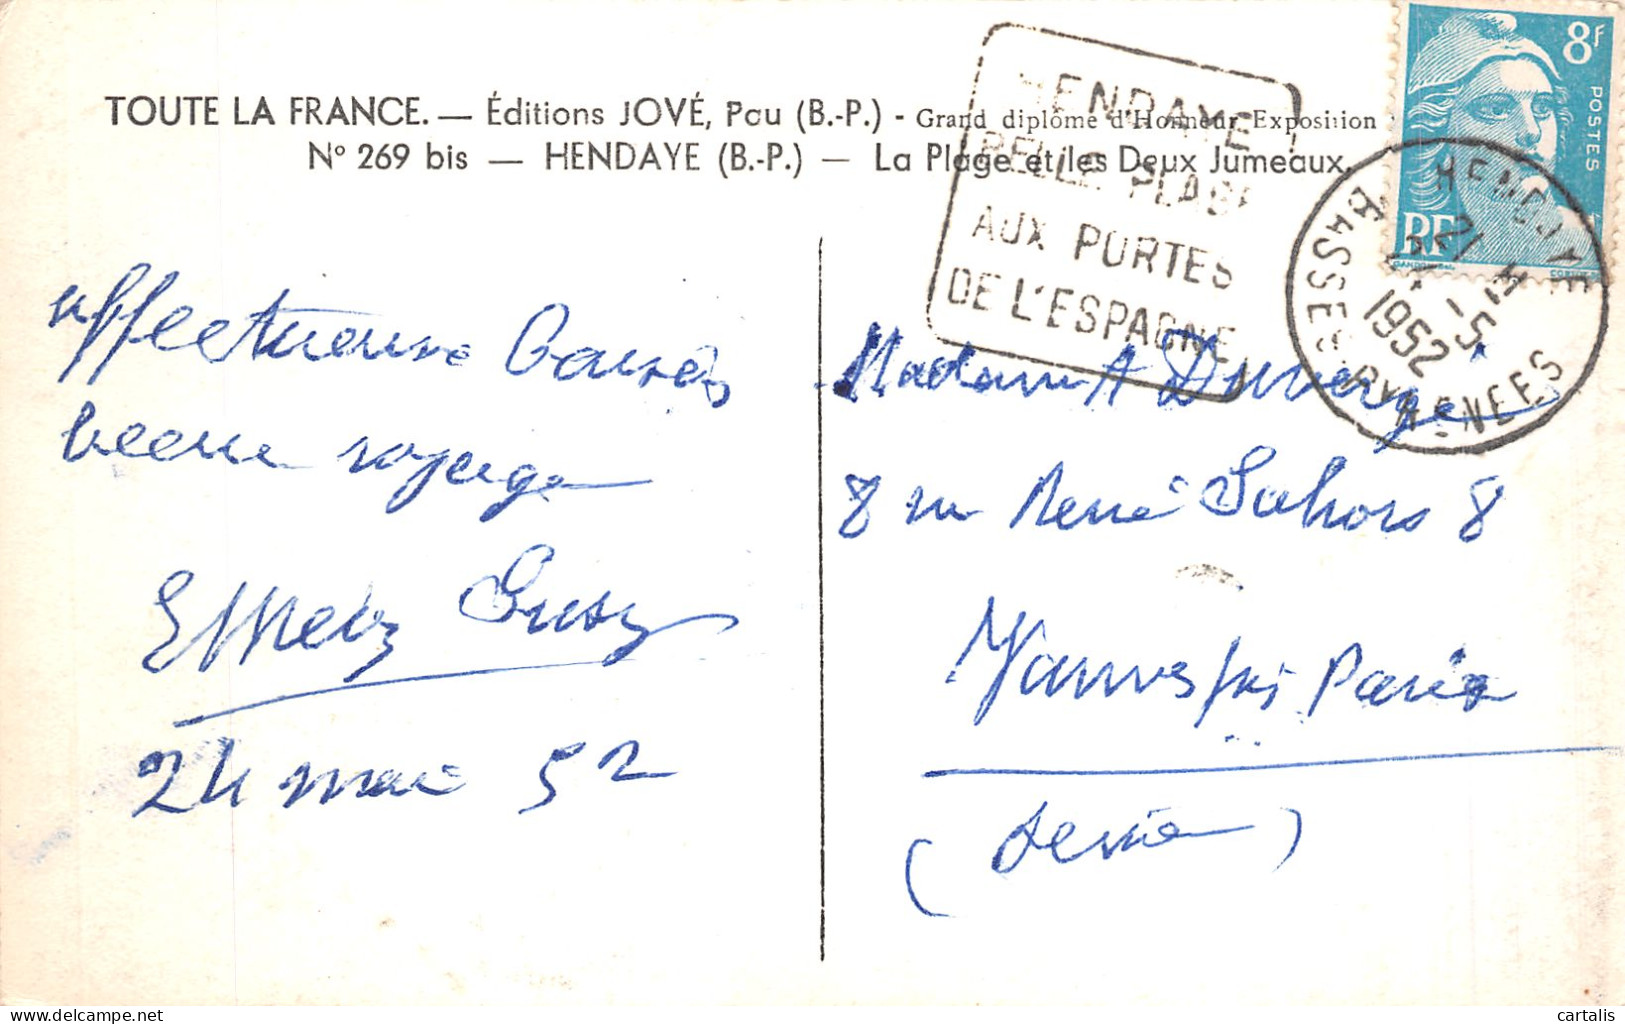 TOUTE LA FRANCE. — Éditions JOVÉ, Pau (B.-P.) - Grand diplôme d'Honneur Exposition
N° 269 bis — HENDAYE (B.-P.) — La Plage et les Deux Jumeaux.
HENDAYE
BELLE PLAGE
AUX PORTES
DE L'ESPAGNE
8F
POSTES
RF
HENDAYE
21 H
1952
-5-
BASSES-PYRENEES
affectueuse
voyage
24 mai 52
Madame A Duverge
8 rue René Sahors 8
Vanves près Paris
(Seine)
cartalis